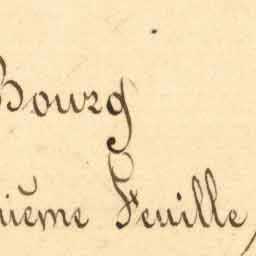 Bourg
ième Feuille